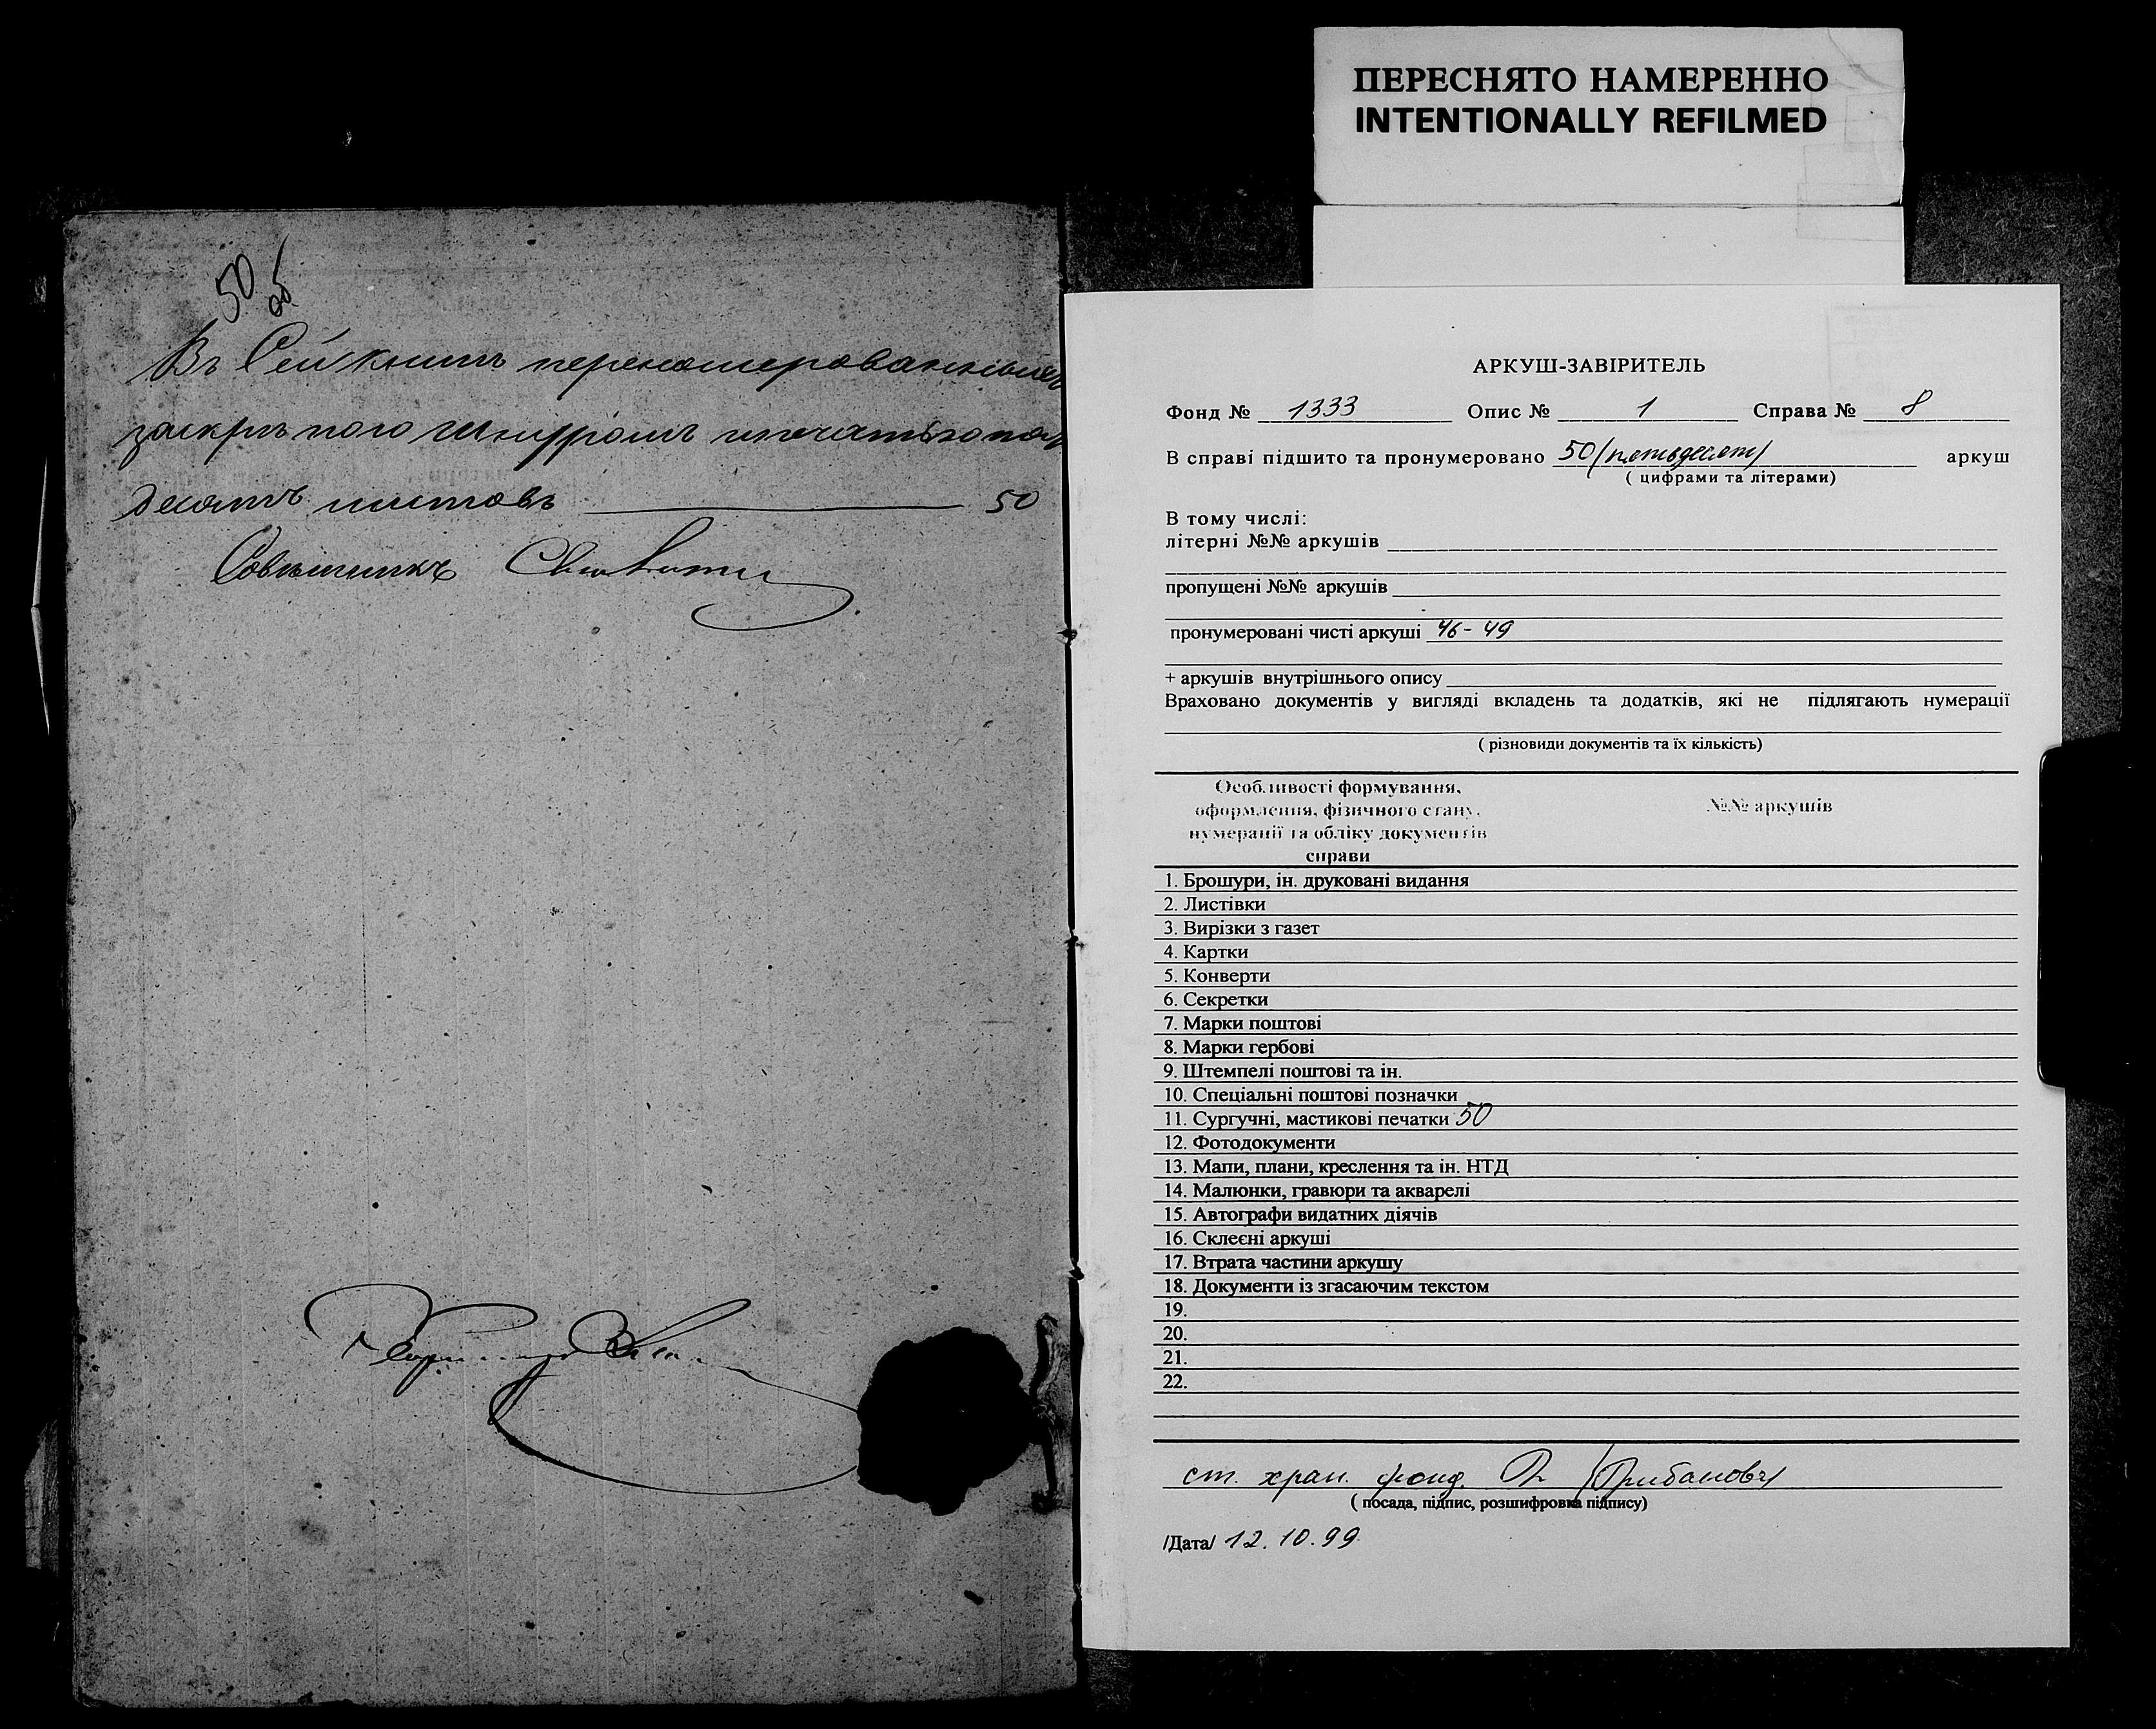 ПЕРЕСНЯТО НАМЕРЕННО
INTENTIONALLY REFILMED
50 об
Въ Сей книгѣ перенумерованныхъ
шнуромъ
десятъ листовъ 50
Совѣтникъ
АРКУШ-ЗАВІРИТЕЛЬ
Фонд № 1333 Опис № 1 Справа № 8
В справі підшито та пронумеровано 50 (пятьдесят) аркуш
( цифрами та літерами)
В тому числі:
літерні №№ аркушів
пропущені №№ аркушів
пронумеровані чисті аркуші 46 - 49
+ аркушів внутрішнього опису
Враховано документів у вигляді вкладень та додатків, які не підлягають нумерації
( різновиди документів та їх кількість)
Особливості формування, №№ аркушів
оформлення, фізичного стану,
нумерації та обліку документів
справи
1. Брошури, ін. друковані видання
2. Листівки
3. Вирізки з газет
4. Картки
5. Конверти
6. Секретки
7. Марки поштові
8. Марки гербові
9. Штемпелі поштові та ін.
10. Спеціальні поштові позначки
11. Сургучні, мастикові печатки 50
12. Фотодокументи
13. Мапи, плани, креслення та ін. НТД
14. Малюнки, гравюри та акварелі
15. Автографи видатних діячів
16. Склеєні аркуші
17. Втрата частини аркушу
18. Документи із згасаючим текстом
19.
20.
21.
22.
ст. хран. фонд.
( посада, підпис, розшифровка підпису)
/Дата/ 12.10.99